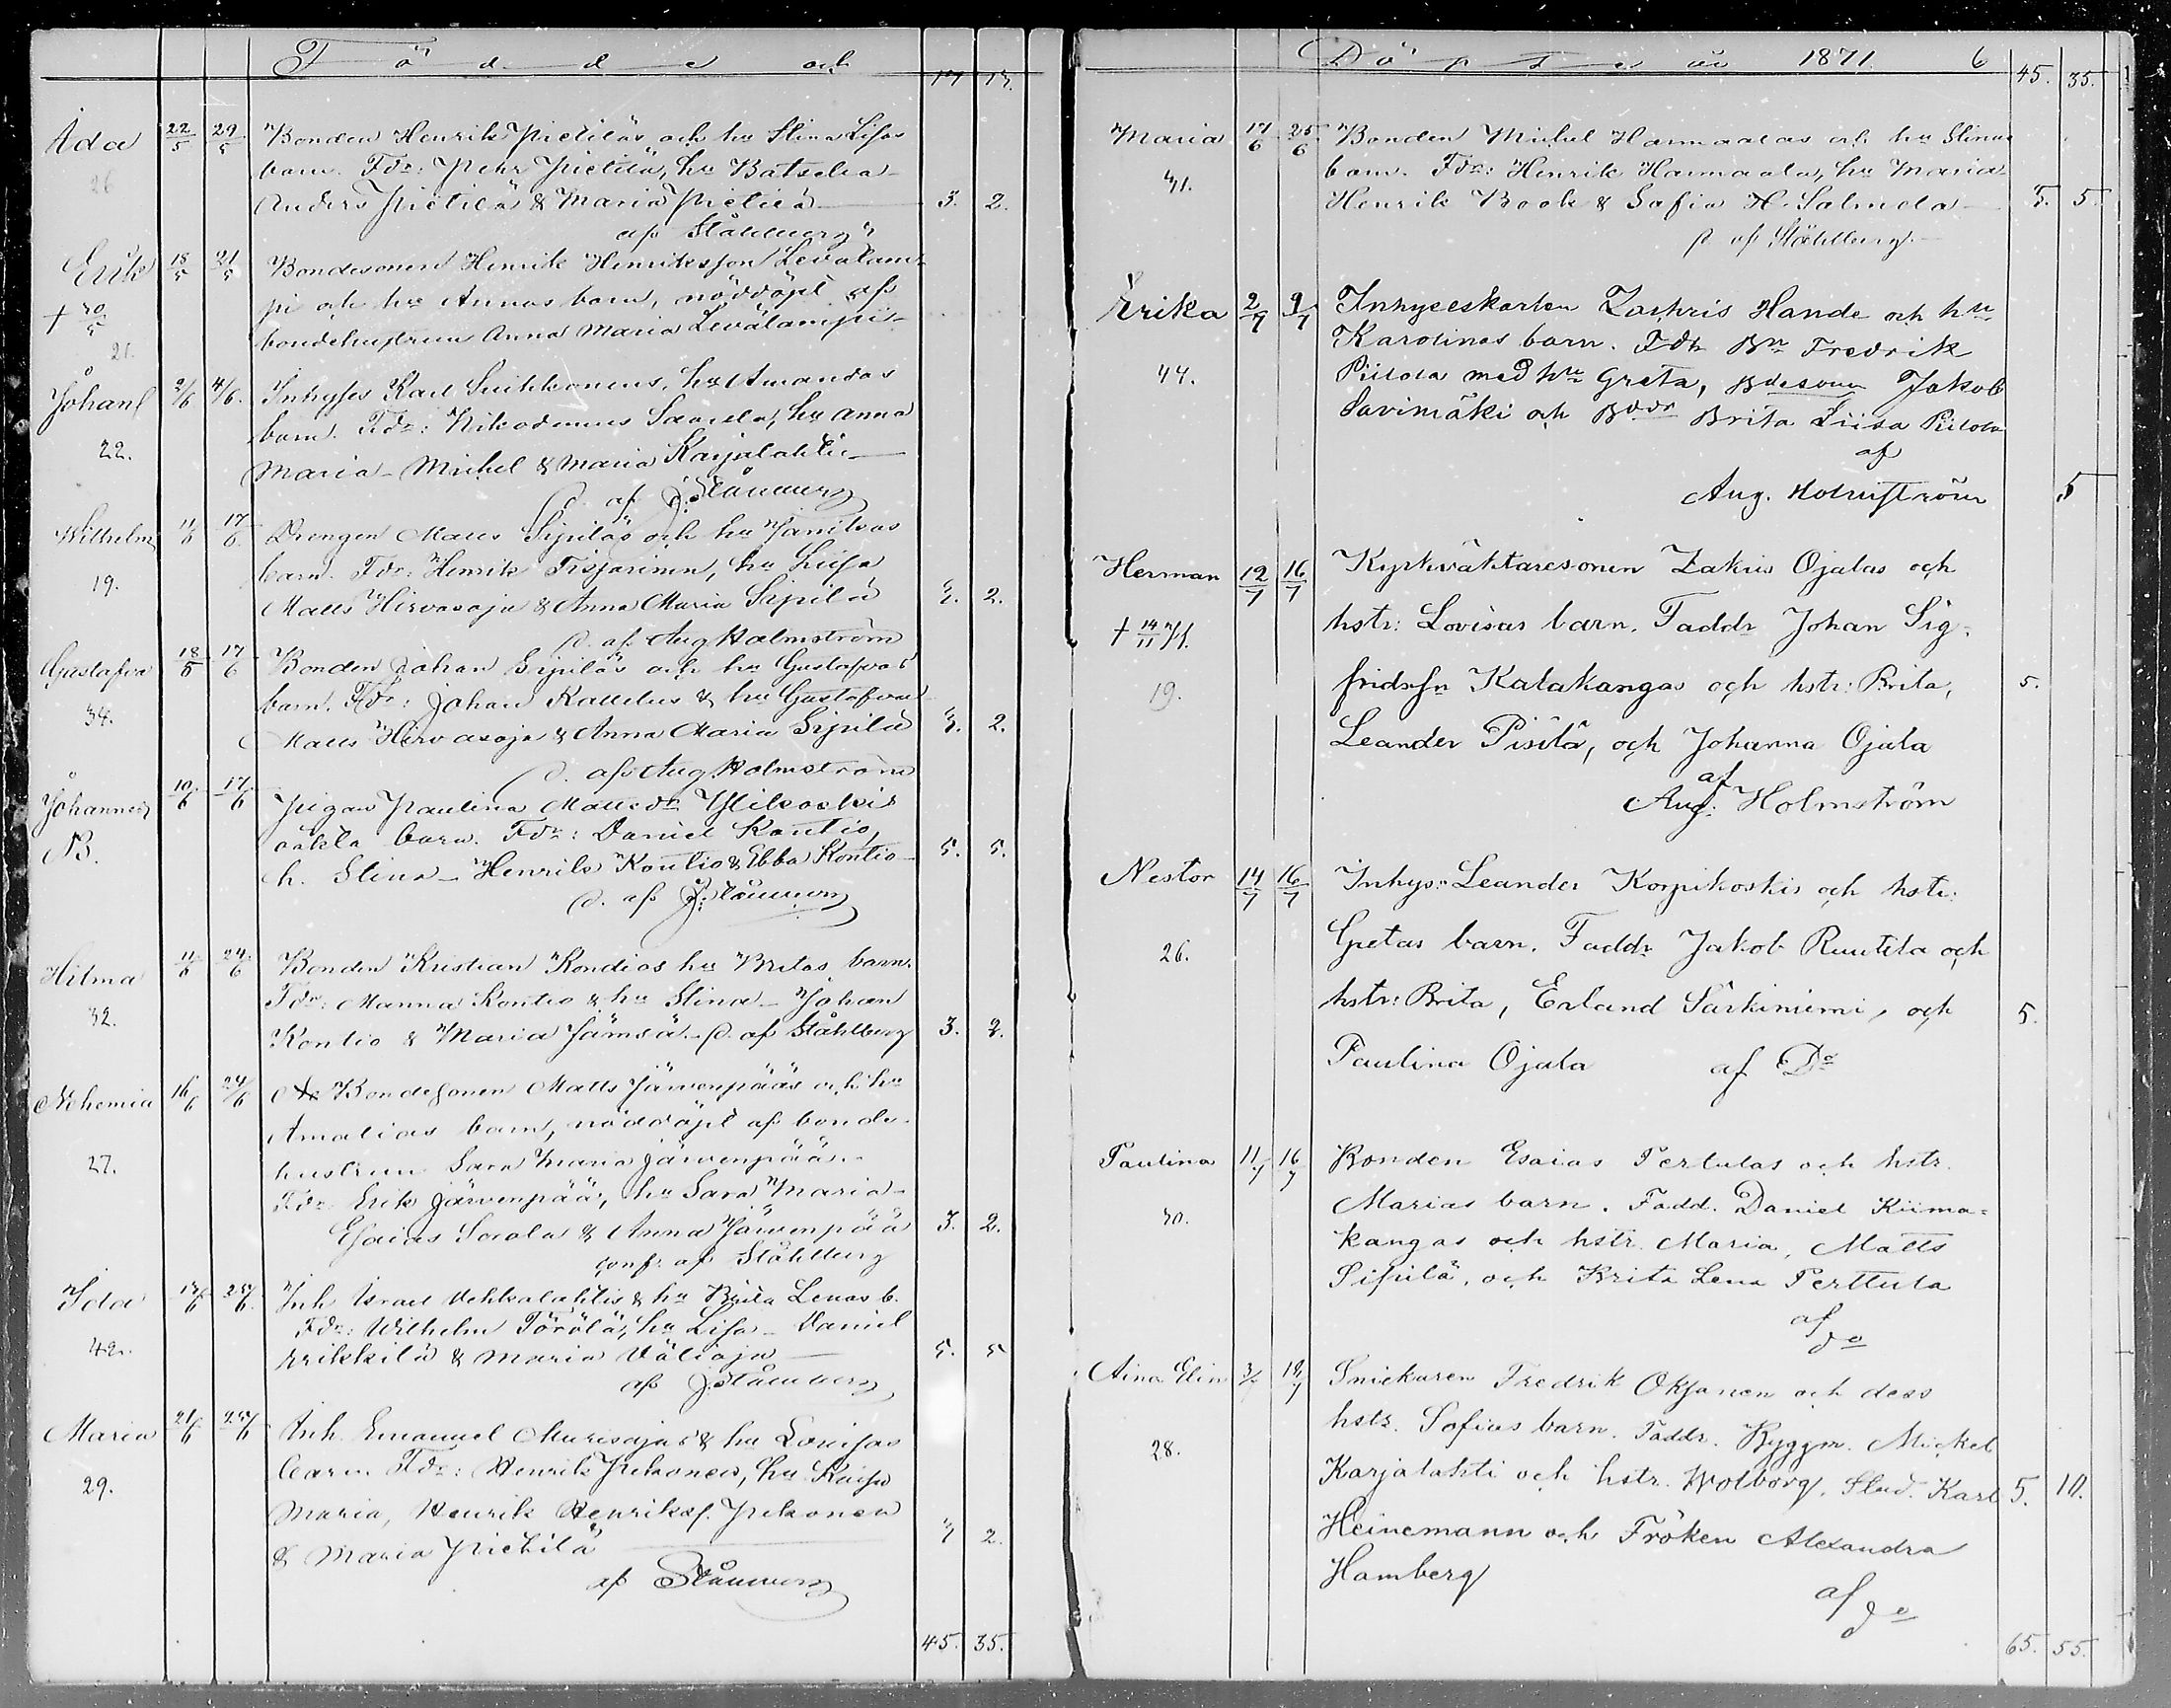 Födde och
17 17.
Ada 22/5 29/5 Bonden Henrik Pietiläs och hu Stina Lisas
26 barn. Fdr: Pehr Pietilä, hu Batseba
Anders Pietilä & Maria Pietilä 3. 2.
af Ståhlberg
Erik 18/5 21/5 Bondesonen Henrik Henriksson Levälam-
† 30/5 pi och hu Annas barn, nöddöpt af
21. bondehustrun Anna Maria Levälampi
Johan 2/6 4/6. Inhyses Karl Suikkonens, hu Amandas
barn. Fdr: Nikodemus Saarela, hu Anna
22. Maria - Mickel & Maria Karjalahti
d. af J. Ståhlberg
Wilhelm 11/6 17/6 Drengen Matts Sipiläs och hu
19. barn. Fdr: Henrik hu Liisa
Matts Hirvasoja & Anna Maria Sipilä 3. 2.
d. af Aug Holmström
Gustafva 18/5 17/6 Bonden Johan Sipiläs och hu Gustafvas
34. barn. Fdr: Johan & hu Gustafva
Matts Hirvasoja & Anna Maria Sipilä 3. 2.
d. af Aug Holmström
Johannes 10/6 17/6 Pigan Paulina Mattsdr Ylikoskis
B. oäkta barn. Fdr: Daniel Kontio,
h. Stina - Henrik Kontio & Ebba Kontio 5. 5.
d. af J. Ståhlberg
Hilma 11/6 24/6 Bonden Kristian Kondios hu Britas barn.
32. Fdr: Manna Kontio & hu Stina - Johan
Kontio & Maria Jämsä. d. af Ståhlberg 3. 2.
Nehemia 16/6 24/6 Bondesonen Matts Järvenpääs och hu
Amalias barn, nöddöpt af bonde-
27. hustrun Sara Maria Järvenpää.
Fdr Erik Järvenpää, hu Sara Maria -
Esaias Saala & Anna Järvenpää 3. 2.
conf. af Ståhlberg
Ida 17/6 25/6. Inh. Israel Vehkalahtis & hu Brita Lenas b.
Fdr: Wilhelm Törölä, hu Lisa - Daniel
42. Erikkilä & Maria Väliaja 5. 5
af J. Ståhlberg
Maria 21/6 25/6 Inh. Emanuel Mursojas & hu Lovisas
29. barn. Fdr: Henrik Pekonen, hu Kaisa
Maria, Henrik Henrikss. Pekonen
& Maria Pietilä 3 2.
af Ståhlberg
45. 35.
Döpte år 1871. 6 45. 35.
Maria 17/6 25/6 Bonden Mickel Hannaalas och hu Stinas
41. barn. Fdr: Henrik Hannaala, hu Maria
Henrik Book & Sofia H. Salmela 5. 5.
d. af Ståhlberg.
Erika 2/7 9/7 Inhyseskarlen Zachris Hande och hu
Karolinas barn. Fdr Bn Fredrik
44. Piilola med hu Greta, Bdesonen Jakob
Savimäki och Bddr Brita Liisa Piilola
af
Aug. Holmström 5
Herman 12/7 16/7 Kyrkväktaresonen Zakris Ojalas och
† 14/11 71. hstr: Lovisas barn. Faddr Johan Sig-
19. fridssn Katakangas och hstr: Brita, 5.
Leander Pisilä, och Johanna Ojala
af
Aug. Holmström
Nestor 14/7 16/7 Inhys: Leander Korpikoskis och hstr:
26. Gretas barn. Faddr Jakob Ruutila och
hstr: Brita, Erland Särkiniemi, och 5.
Paulina Ojala af Do
Paulina 11/7 16/7 Bonden Esaias Pertulas och hstr.
30. Marias barn. Fadd. Daniel Kiima-
kangas och hstr. Maria, Matts
Sipilä, och Brita Lena Perttula
af
do
Aina Elin 3/7 19/7 Snickaren Fredrik Oksanen och dess
28. hstr. Sofias barn. Faddr. Byggm. Mickel
Karjalahti och hstr. Wolborg. Stud. Karl 5. 10.
Heinemann och Fröken Alexandra
Hamberg
af do
65. 55.